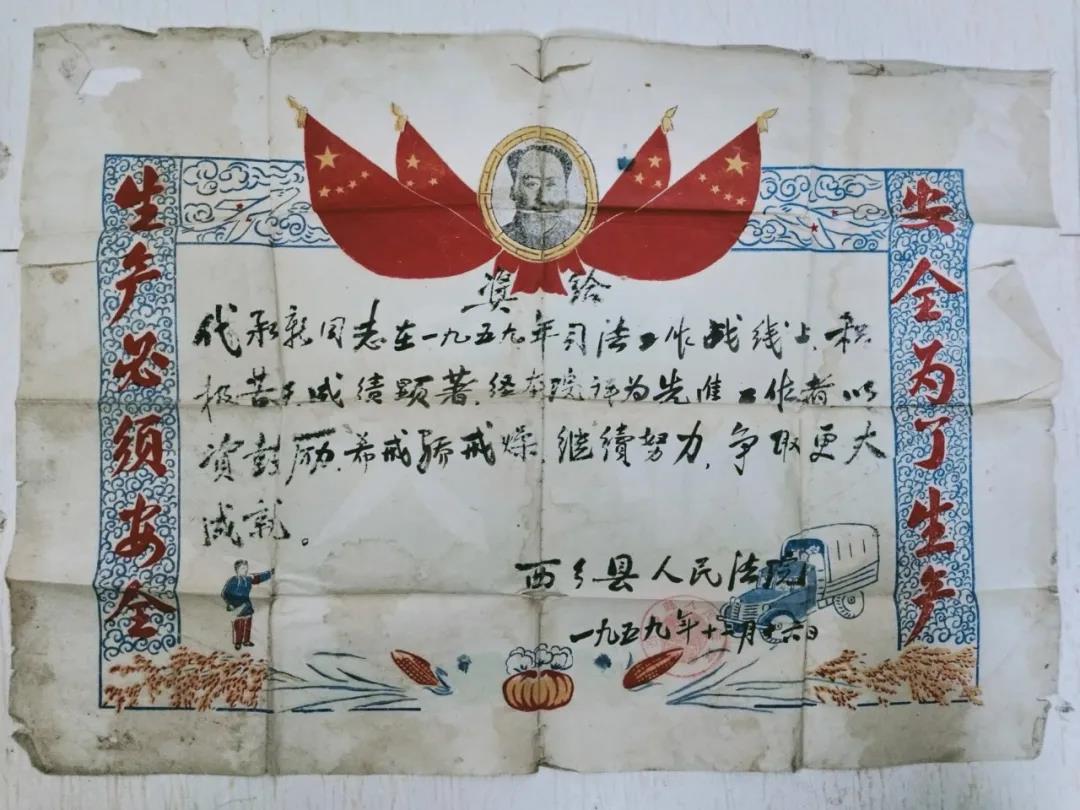 生产必须安全
安全为了生产
奖给
代承 同志在一九五九年司法工作战线上,积
极苦干,成绩顕著,经本院评为先进工作者,以
资鼓励,希戒骄戒燥,继续努力,争取更大
成就。
西乡县人民法院
一九五九年十二月十六日